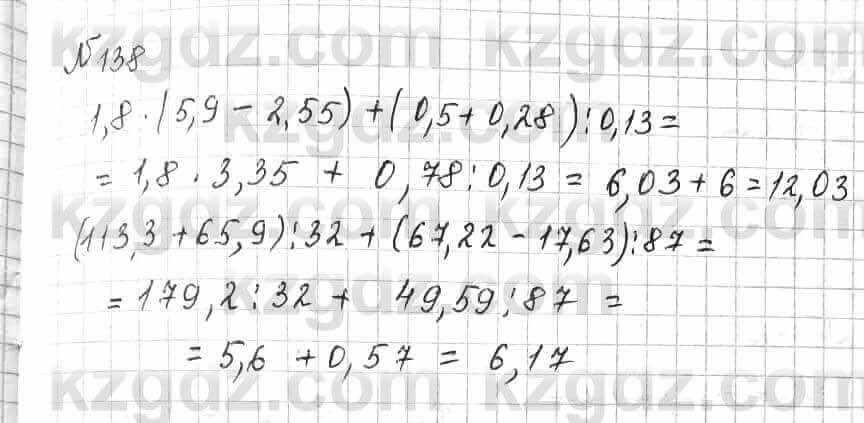 №138
1,8 · (5,9 - 2,55) + (0,5 + 0,28) : 0,13 =
= 1,8 · 3,35 + 0,78 : 0,13 = 6,03 + 6 = 12,03
(113,3 + 65,9) : 32 + (67,22 - 17,63) : 87 =
= 179,2 : 32 + 49,59 : 87 =
= 5,6 + 0,57 = 6,17
kzgdz.com